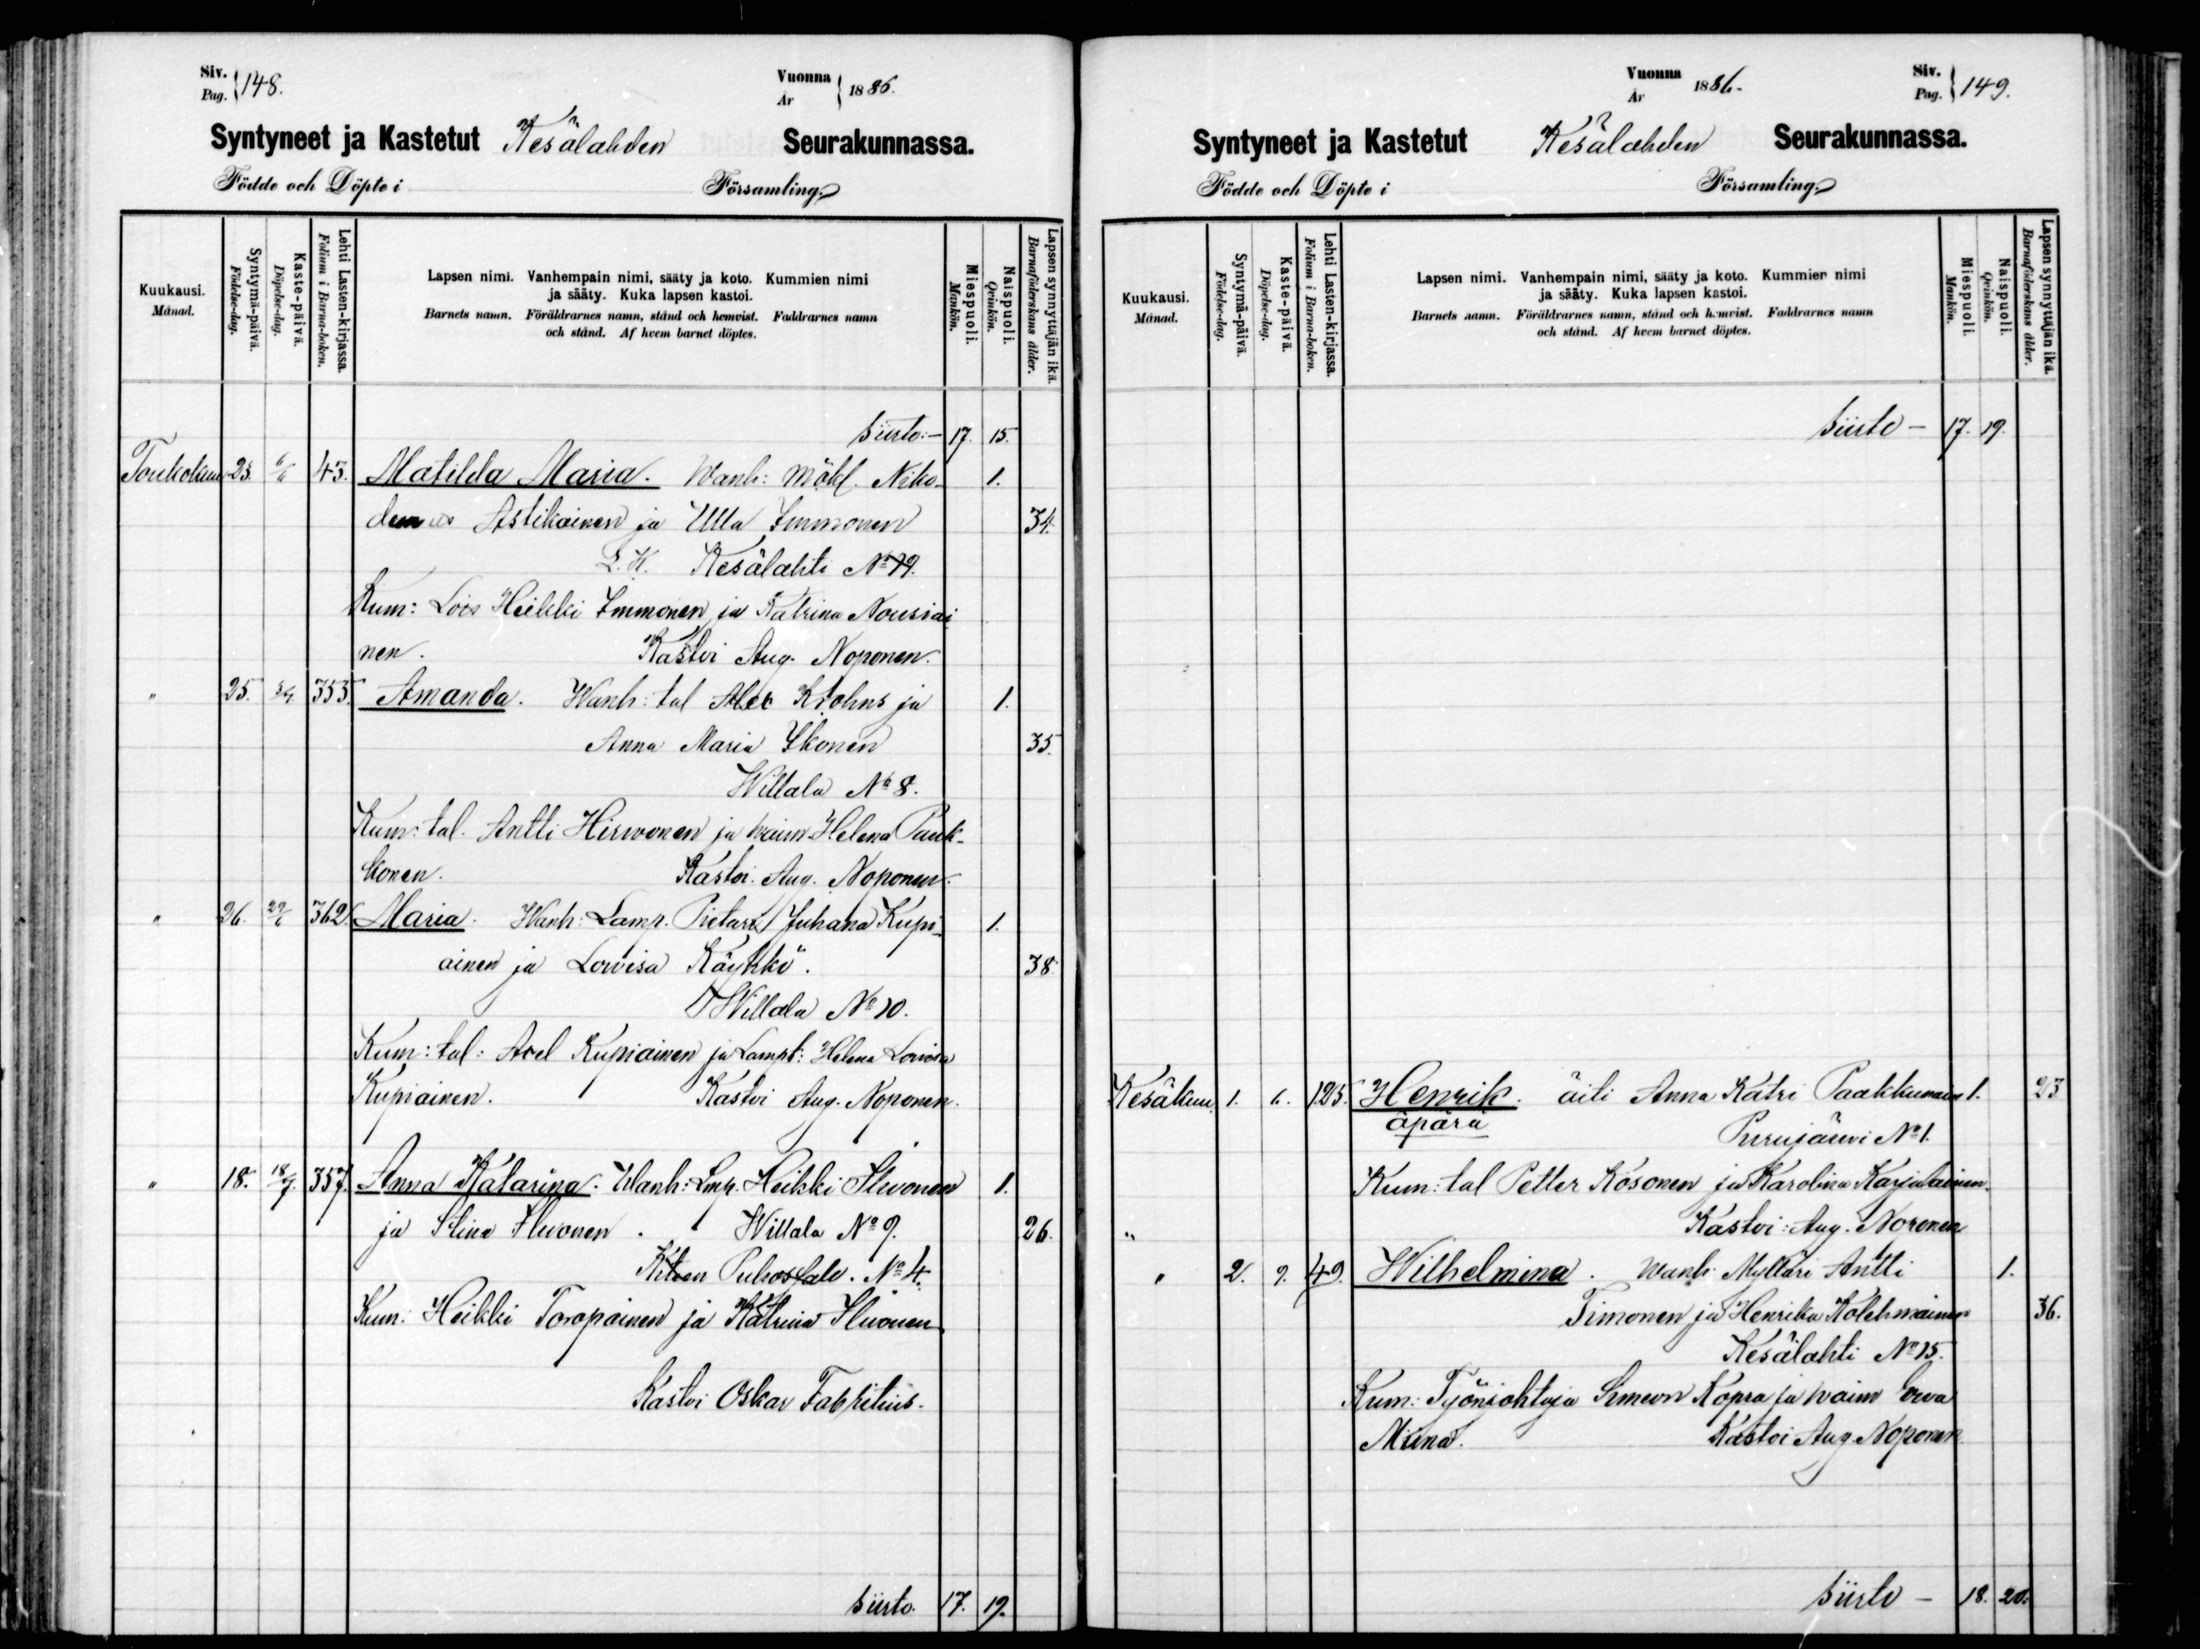 Siv.
Pag. 148.
Vuonna
År 1886.
Syntyneet ja Kastetut Kesälahden Seurakunnassa.
Födde och Döpte i Församling.
Kuukausi.
Månad.
Syntymä-päivä.
Födelse-dag.
Kaste-päivä.
Döpelse-dag.
Lehti Lasten-kirjassa.
Folium i Barna-boken.
Lapsen nimi. Vanhempain nimi, sääty ja koto. Kummien nimi
ja sääty. Kuka lapsen kastoi.
Barnets namn. Föräldrarnes namn, stånd och hemvist. Faddrarnes namn
och stånd. Af hvem barnet döptes.
Miespuoli.
Mankön.
Naispuoli.
Qvinkön.
Lapsen synnyttäjän ikä.
Barnaföderskans ålder.
Siirto:- 17. 15.
Toukokuu 23. 6/6 43. Matilda Maria. Wanh: Mökl. Niko- 1.
demus Astikainen ja Ulla Immonen 34.
L. K. Kesälahti No 19.
Kum: Lois Heikki Immonen ja Katrina Nousiai
nen. Kastoi Aug. Noponen.
" 25. 355. Amanda. Wanh: tal Krohns ja 1.
Anna Maria Ikonen 35.
Willala No 8.
Kum: tal. Antti Hirwonen ja waim Helena Pauk-
konen. Kastoi. Aug. Noponen.
" 26. 29/6 362. Maria. Wanh: Lamp. Pietari Juhana Kupi- 1.
ainen ja Lowisa Käyhkö. 38.
Willala No 10.
Kum: tal: Axel Kupiainen ja Lampt: Helena Lowisa
Kupiainen. Kastoi Aug. Noponen.
" 18. 18/7 357. Anna Katarina. Wanh: Lmp. Heikki Ilwonen 1.
ja Stina Ilwonen. Willala No 9. 26.
No 4.
Kum: Heikki Toropainen ja Katrina Ilwonen
Kastoi Oskar Fabritius.
Siirto. 17. 19.
Vuonna
År 1886.
Siv.
Pag. 149.
Syntyneet ja Kastetut Kesälahden Seurakunnassa.
Födde och Döpte i Församling.
Kuukausi.
Månad.
Syntymä-päivä.
Födelse-dag.
Kaste-päivä.
Döpelse-dag.
Lehti Lasten-kirjassa.
Folium i Barna-boken.
Lapsen nimi. Vanhempain nimi, sääty ja koto. Kummien nimi
ja sääty. Kuka lapsen kastoi.
Barnets namn. Föräldrarnes namn, stånd och hemvist. Faddrarnes namn
och stånd. Af hvem barnet döptes.
Miespuoli.
Mankön.
Naispuoli.
Qvinkön.
Lapsen synnyttäjän ikä.
Barnaföderskans ålder.
Siirto - 17. 19.
Kesäkuu 1. 6. 125. Henrik. äiti Anna Katri Paakkunainen 1. 23
äpärä Purujärwi No 1.
Kum: tal Petter Kosonen ja Karolina Karjalainen.
" Kastoi: Aug. Noponen
" 2. 9. 49. Wilhelmina. Wanh: Mylläri Antti 1.
Timonen ja Henrika Kolehmainen 36.
Kesälahti No 15.
Kum: Työnjohtaja Simeon Kopra ja waim Ewa
Miina. Kastoi Aug Noponen
Siirto - 18. 20.